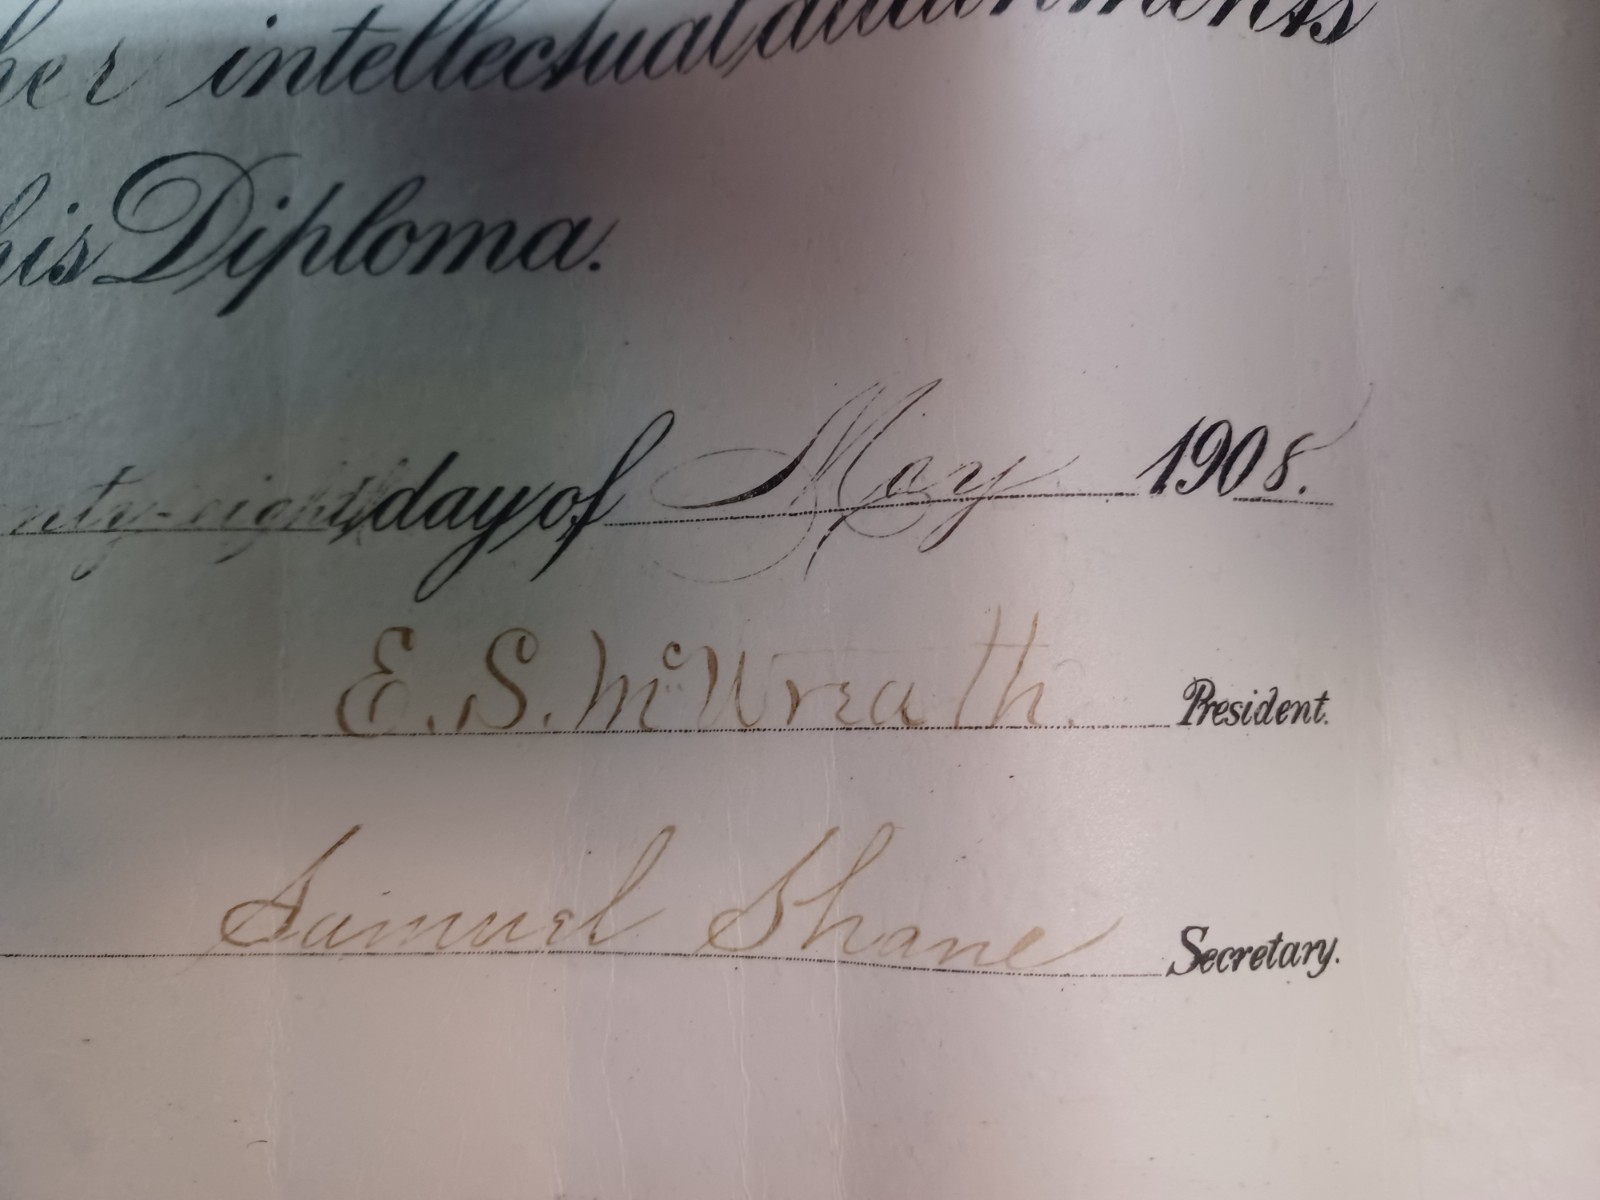 her intellectual attainments
his Diploma.
nty-eighth day of May 1908.
E. S. McWreath. President.
Samuel Shane Secretary.